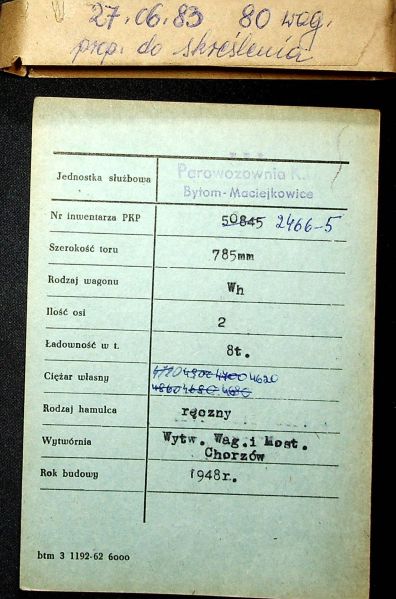 27.06.83 80 wag.
prop. do skreślenia
Jednostka służbowa Parowozownia
Bytom-Maciejkowice
Nr inwentarza PKP 50845 2466-5
Szerokość toru 785mm
Rodzaj wagonu Wh
Ilość osi 2
Ładowność w t. 8t.
Ciężar własny 4620
Rodzaj hamulca ręczny
Wytwórnia Wytw. Wag.i Most.
Chorzów
Rok budowy 1948r.
btm 3 1192-62 6000